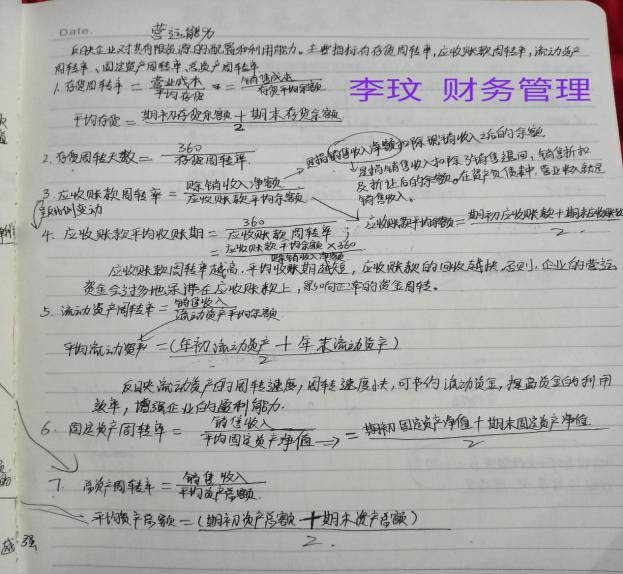 Date.
营运能力
反映企业对其有限资源的配置和利用能力。主要指标有存货周转率,应收账款周转率,流动资产
周转率、固定资产周转率、总资产周转率
李玟 财务管理
1. 存货周转率 = 营业成本/平均存货 = 销售成本/存货平均余额
平均存货 = 期初存货余额 + 期末存货余额/2
2. 存货周转天数 = 360/存货周转率
是指销售收入净额扣除现销收入之后的余额
是指销售收入扣除了销售退回,销售折扣
及折让后的余额。在资产负债表中,营业收入就是
销售收入。
3. 应收账款周转率 = 赊销收入净额/应收账款平均余额
应收账款平均余额 = 期初应收账款 + 期末应收账款/2
4. 应收账款平均收账期 = 360/应收账款周转率
= 应收账款平均余额 × 360/赊销收入净额
应收账款周转率越高,平均收账期越短,应收账款的回收越快。否则,企业的营运
资金会过多地呆滞在应收账款上,影响正常的资金周转。
5. 流动资产周转率 = 销售收入/流动资产平均余额
平均流动资产 = (年初流动资产 + 年末流动资产)/2
反映流动资产的周转速度,周转速度快,可节约流动资金,提高资金的利用
效率,增强企业的盈利能力.
6. 固定资产周转率 = 销售收入/平均固定资产净值 → = 期初固定资产净值 + 期末固定资产净值/2
7. 总资产周转率 = 销售收入/平均资产总额
平均资产总额 = (期初资产总额 + 期末资产总额)/2.
越强